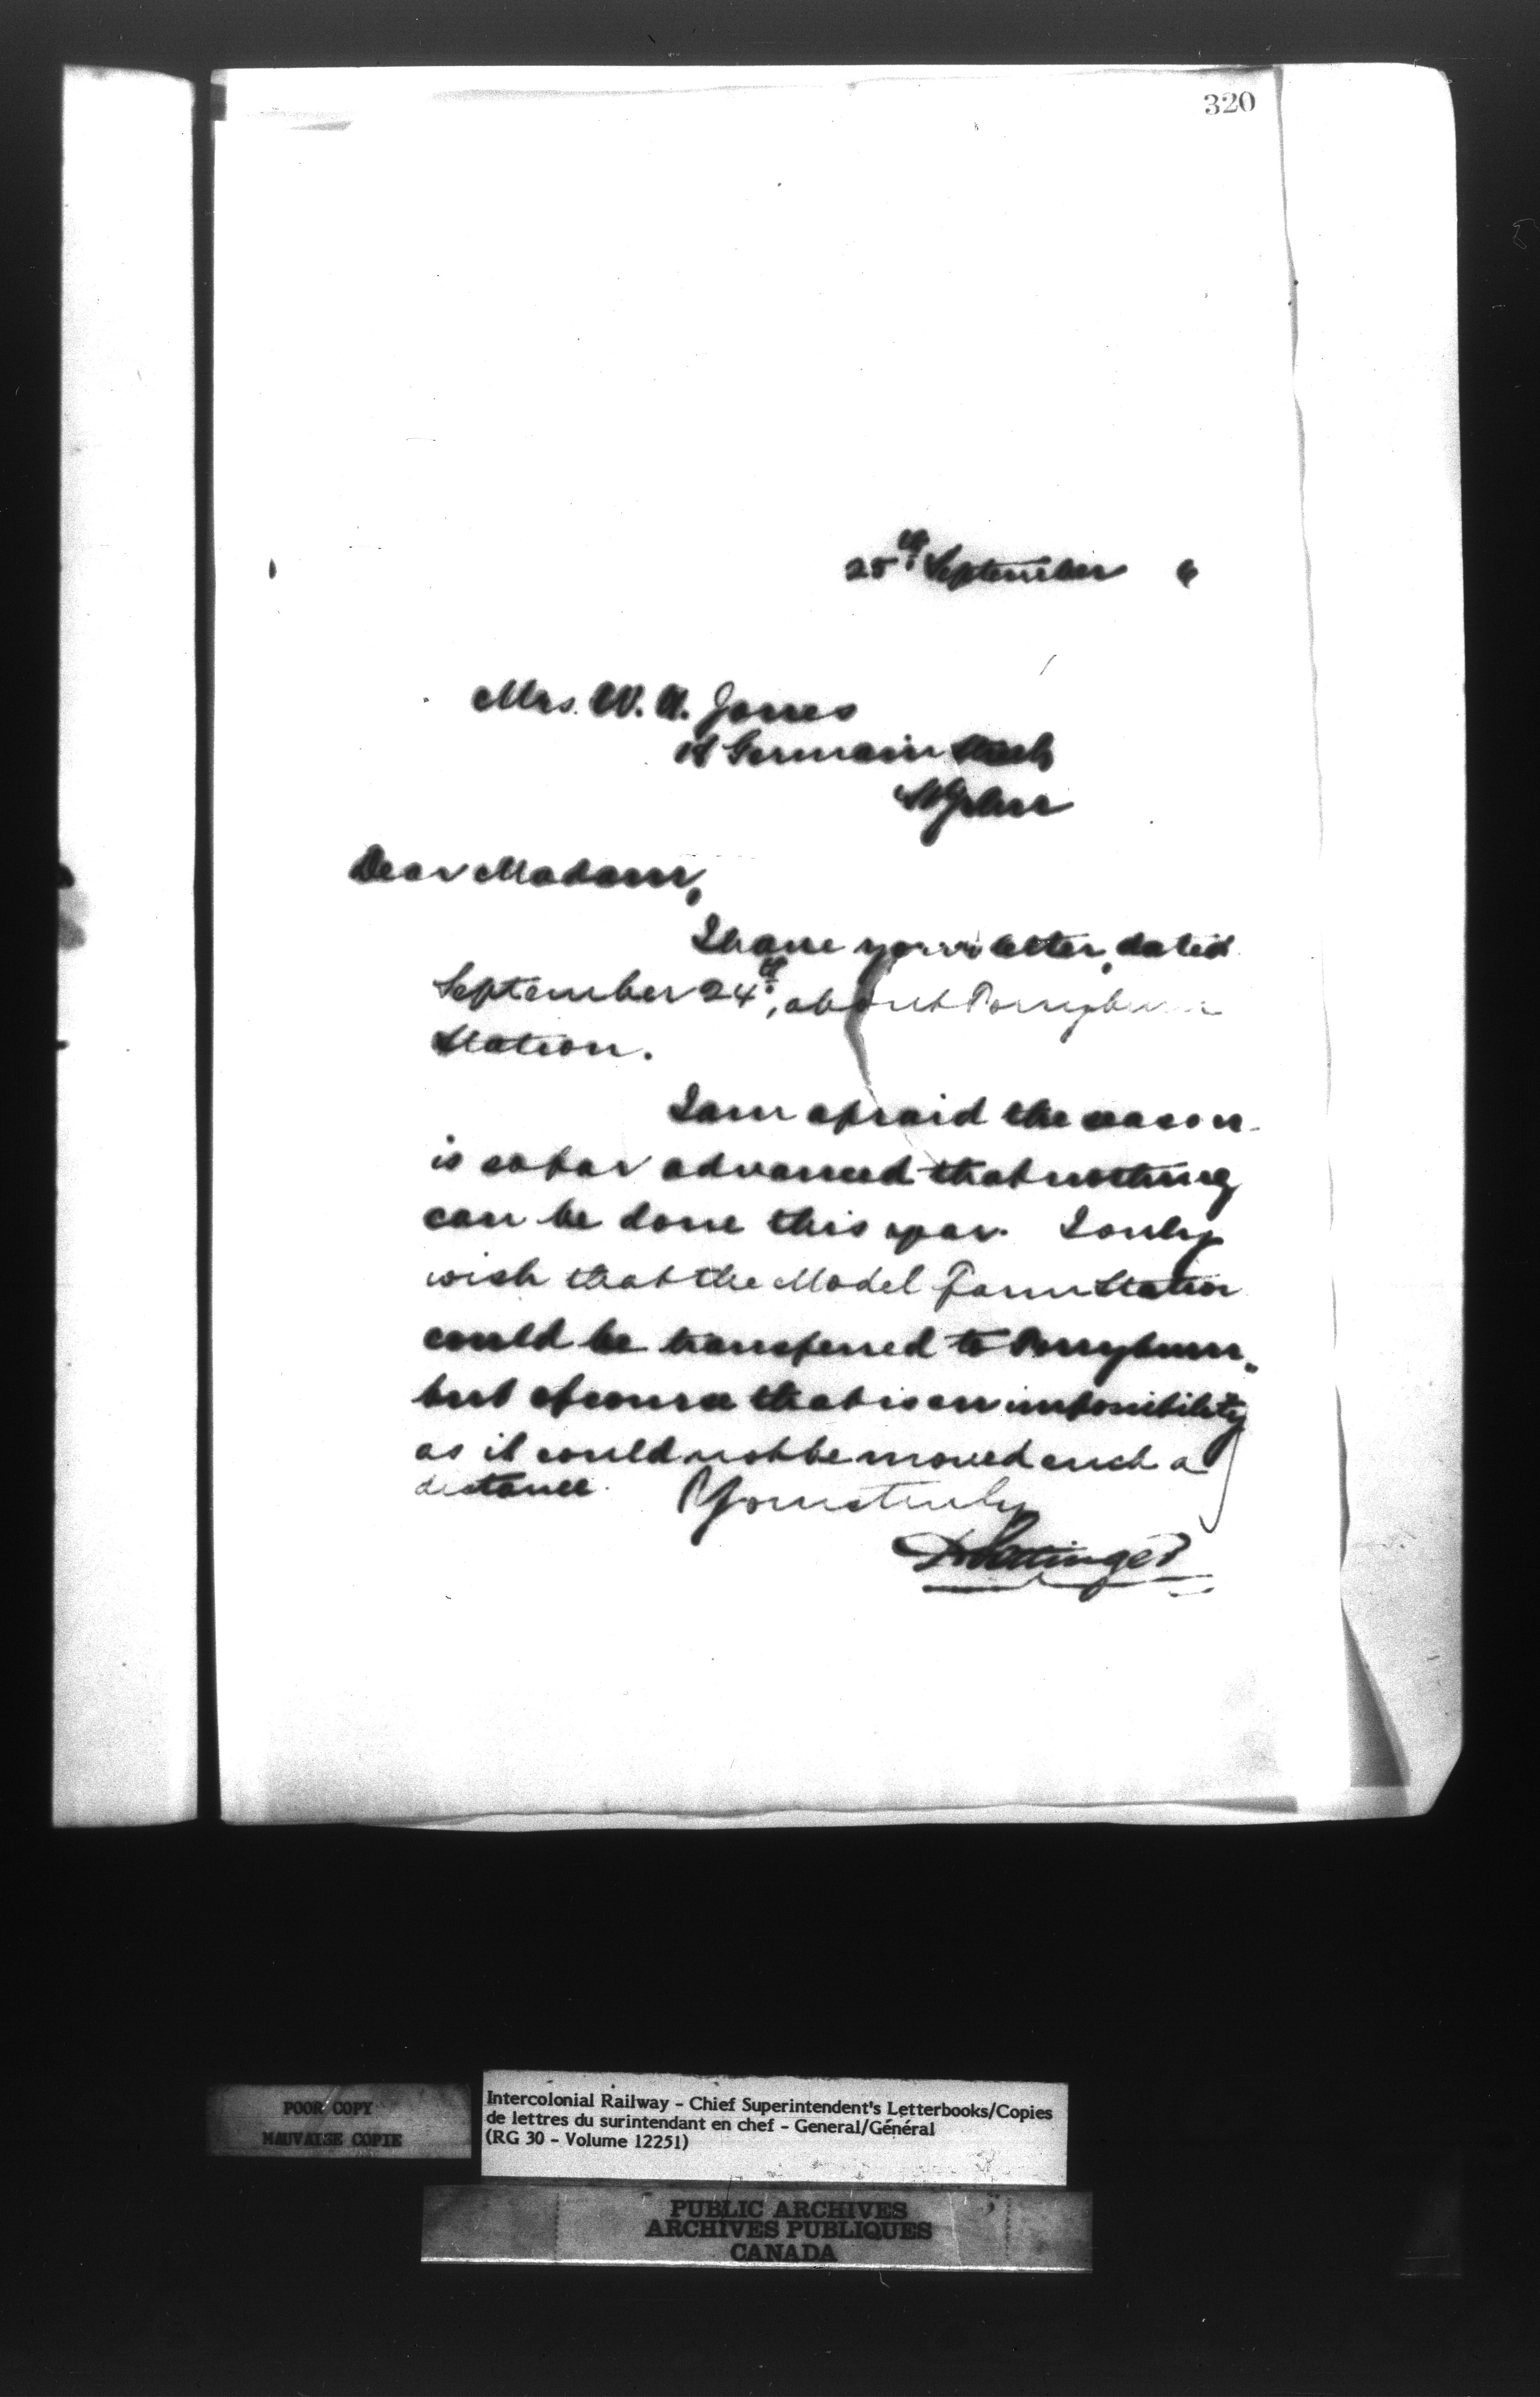 320
25th September 6
Mrs. W. U. Jones
Germain Street
St John
Dear Madam,
I have your letter, dated
September 24th, about
Station.
I am afraid the season
is so far advanced that nothing
can be done this year. I only
wish that the Model Farm Station
could be transferred to
but of course that is an impossibility
as it could not be moved such a
distance. Yours truly
D Pottinger
POOR COPY
MAUVAISE COPIE
Intercolonial Railway - Chief Superintendent's Letterbooks/Copies
de lettres du surintendant en chef - General/Général
(RG 30 - Volume 12251)
PUBLIC ARCHIVES
ARCHIVES PUBLIQUES
CANADA